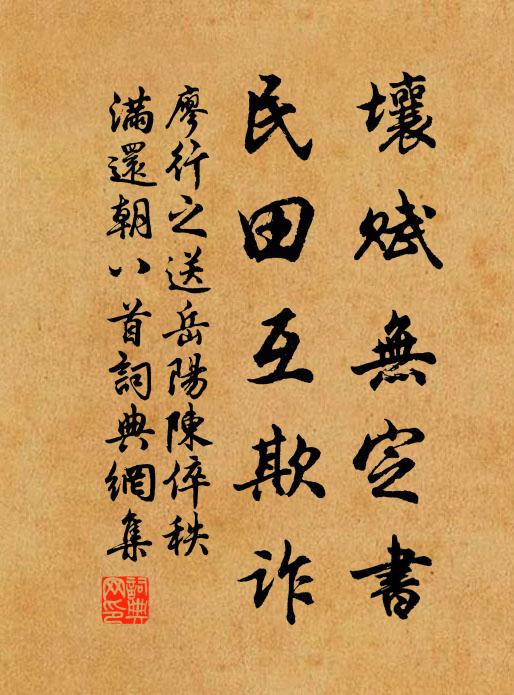 壤賦無定書
民田互欺詐
廖行之送岳陽陳倅秩
滿還朝八首詞典網集
詞典
网印